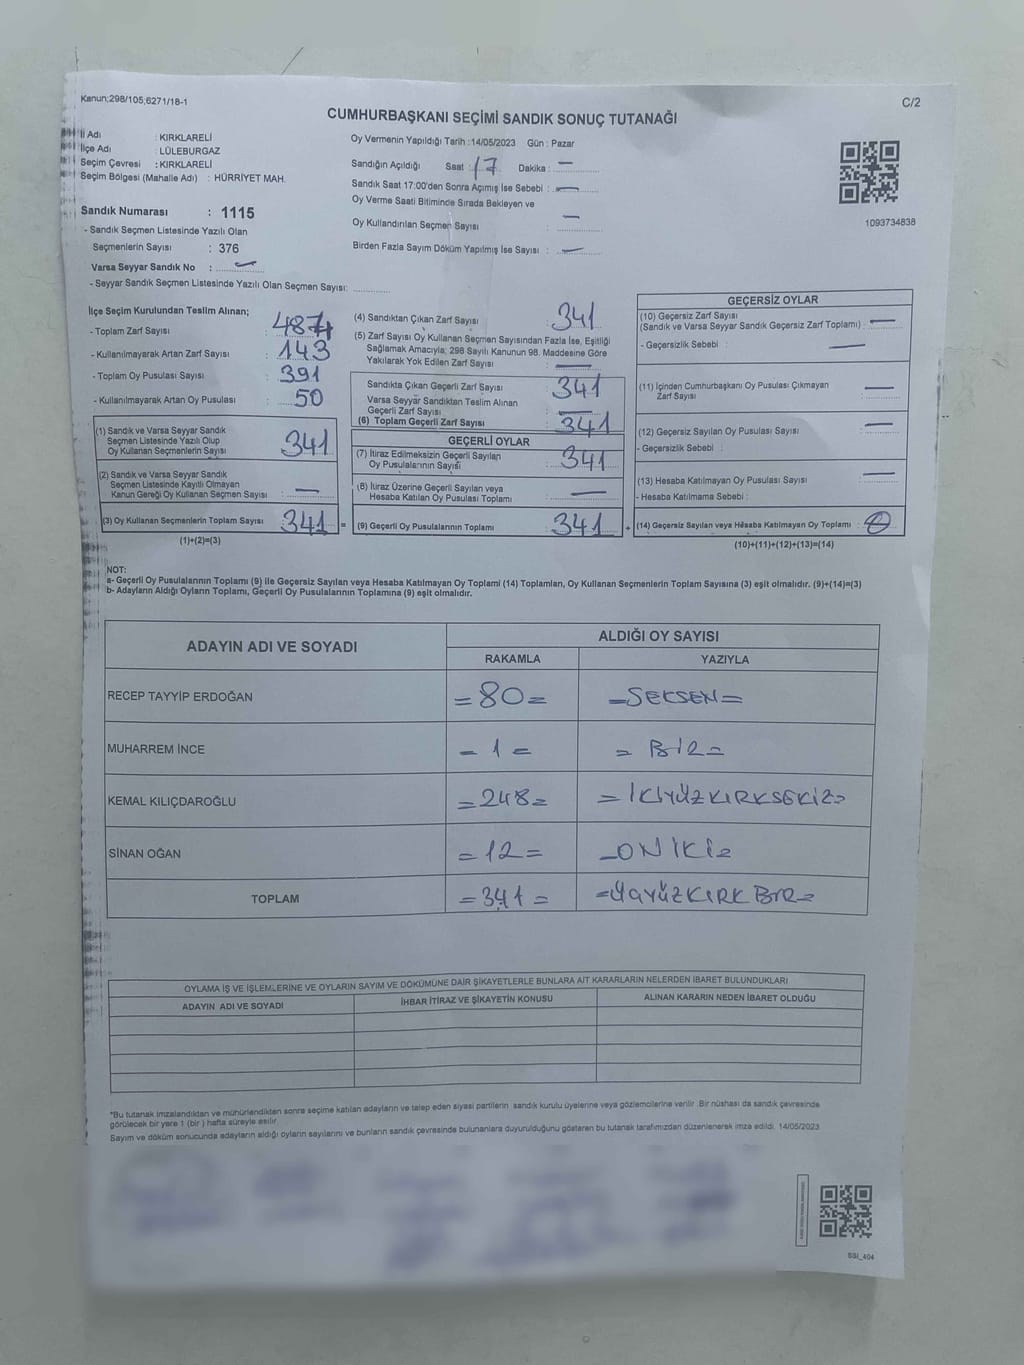 Kanun;298/105;6271/18-1
C/2
CUMHURBAŞKANI SEÇİMİ SANDIK SONUÇ TUTANAĞI
İl Adı : KIRKLARELİ
İlçe Adı : LÜLEBURGAZ
Seçim Çevresi : KIRKLARELİ
Seçim Bölgesi (Mahalle Adı) : HÜRRİYET MAH.
Sandık Numarası : 1115
- Sandık Seçmen Listesinde Yazılı Olan
Seçmenlerin Sayısı : 376
Varsa Seyyar Sandık No : —
- Seyyar Sandık Seçmen Listesinde Yazılı Olan Seçmen Sayısı:
Oy Vermenin Yapıldığı Tarih :14/05/2023 Gün : Pazar
Sandığın Açıldığı Saat : 17 Dakika : —
Sandık Saat 17:00'den Sonra Açımış İse Sebebi : —
Oy Verme Saati Bitiminde Sırada Bekleyen ve
Oy Kullandırılan Seçmen Sayısı : —
Birden Fazla Sayım Döküm Yapılmış İse Sayısı : —
1093734838
İlçe Seçim Kurulundan Teslim Alınan;
- Toplam Zarf Sayısı
- Kullanılmayarak Artan Zarf Sayısı : 143
- Toplam Oy Pusulası Sayısı : 391
- Kullanılmayarak Artan Oy Pusulası : 50
(1) Sandık ve Varsa Seyyar Sandık
Seçmen Listesinde Yazılı Olup
Oy Kullanan Seçmenlerin Sayısı 341
(2) Sandık ve Varsa Seyyar Sandık
Seçmen Listesinde Kayıtlı Olmayan
Kanun Gereği Oy Kullanan Seçmen Sayısı : —
(3) Oy Kullanan Seçmenlerin Toplam Sayısı : 341 =
(1)+(2)=(3)
(4) Sandıktan Çıkan Zarf Sayısı : 341
(5) Zarf Sayısı Oy Kullanan Seçmen Sayısından Fazla İse, Eşitliği
Sağlamak Amacıyla; 298 Sayılı Kanunun 98. Maddesine Göre
Yakılarak Yok Edilen Zarf Sayısı : —
Sandıkta Çıkan Geçerli Zarf Sayısı : 341
Varsa Seyyar Sandıktan Teslim Alınan
Geçerli Zarf Sayısı : —
(6) Toplam Geçerli Zarf Sayısı : 341
GEÇERLİ OYLAR
(7) İtiraz Edilmeksizin Geçerli Sayılan
Oy Pusulalarının Sayısı : 341
(8) İtiraz Üzerine Geçerli Sayılan veya
Hesaba Katılan Oy Pusulası Toplamı : —
(9) Geçerli Oy Pusulalarının Toplamı : 341 +
GEÇERSİZ OYLAR
(10) Geçersiz Zarf Sayısı
(Sandık ve Varsa Seyyar Sandık Geçersiz Zarf Toplamı) : —
- Geçersizlik Sebebi : —
(11) İçinden Cumhurbaşkanı Oy Pusulası Çıkmayan
Zarf Sayısı : —
(12) Geçersiz Sayılan Oy Pusulası Sayısı : —
- Geçersizlik Sebebi :
(13) Hesaba Katılmayan Oy Pusulası Sayısı : —
- Hesaba Katılmama Sebebi :
(14) Geçersiz Sayılan veya Hesaba Katılmayan Oy Toplamı : 0
(10)+(11)+(12)+(13)=(14)
NOT:
a- Geçerli Oy Pusulalarının Toplamı (9) ile Geçersiz Sayılan veya Hesaba Katılmayan Oy Toplamı (14) Toplamları, Oy Kullanan Seçmenlerin Toplam Sayısına (3) eşit olmalıdır. (9)+(14)=(3)
b- Adayların Aldığı Oyların Toplamı, Geçerli Oy Pusulalarının Toplamına (9) eşit olmalıdır.
ADAYIN ADI VE SOYADI ALDIĞI OY SAYISI
RAKAMLA YAZIYLA
RECEP TAYYİP ERDOĞAN =80= =SEKSEN=
MUHARREM İNCE =1= =BİR=
KEMAL KILIÇDAROĞLU =248= =İKİYÜZKIRKSEKİZ=
SİNAN OĞAN =12= =ONİKİ=
TOPLAM =341= =ÜÇYÜZKIRKBİR=
OYLAMA İŞ VE İŞLEMLERİNE VE OYLARIN SAYIM VE DÖKÜMÜNE DAİR ŞİKAYETLERLE BUNLARA AİT KARARLARIN NELERDEN İBARET BULUNDUKLARI
ADAYIN ADI VE SOYADI İHBAR İTİRAZ VE ŞİKAYETİN KONUSU ALINAN KARARIN NEDEN İBARET OLDUĞU
*Bu tutanak imzalandıktan ve mühürlendikten sonra seçime katılan adayların ve talep eden siyasi partilerin sandık kurulu üyelerine veya gözlemcilerine verilir. Bir nüshası da sandık çevresinde
görülecek bir yere 1 (bir) hafta süreyle asılır.
Sayım ve döküm sonucunda adayların aldığı oyların sayılarını ve bunların sandık çevresinde bulunanlara duyurulduğunu gösteren bu tutanak tarafımızdan düzenlenerek imza edildi. 14/05/2023
SSI_404